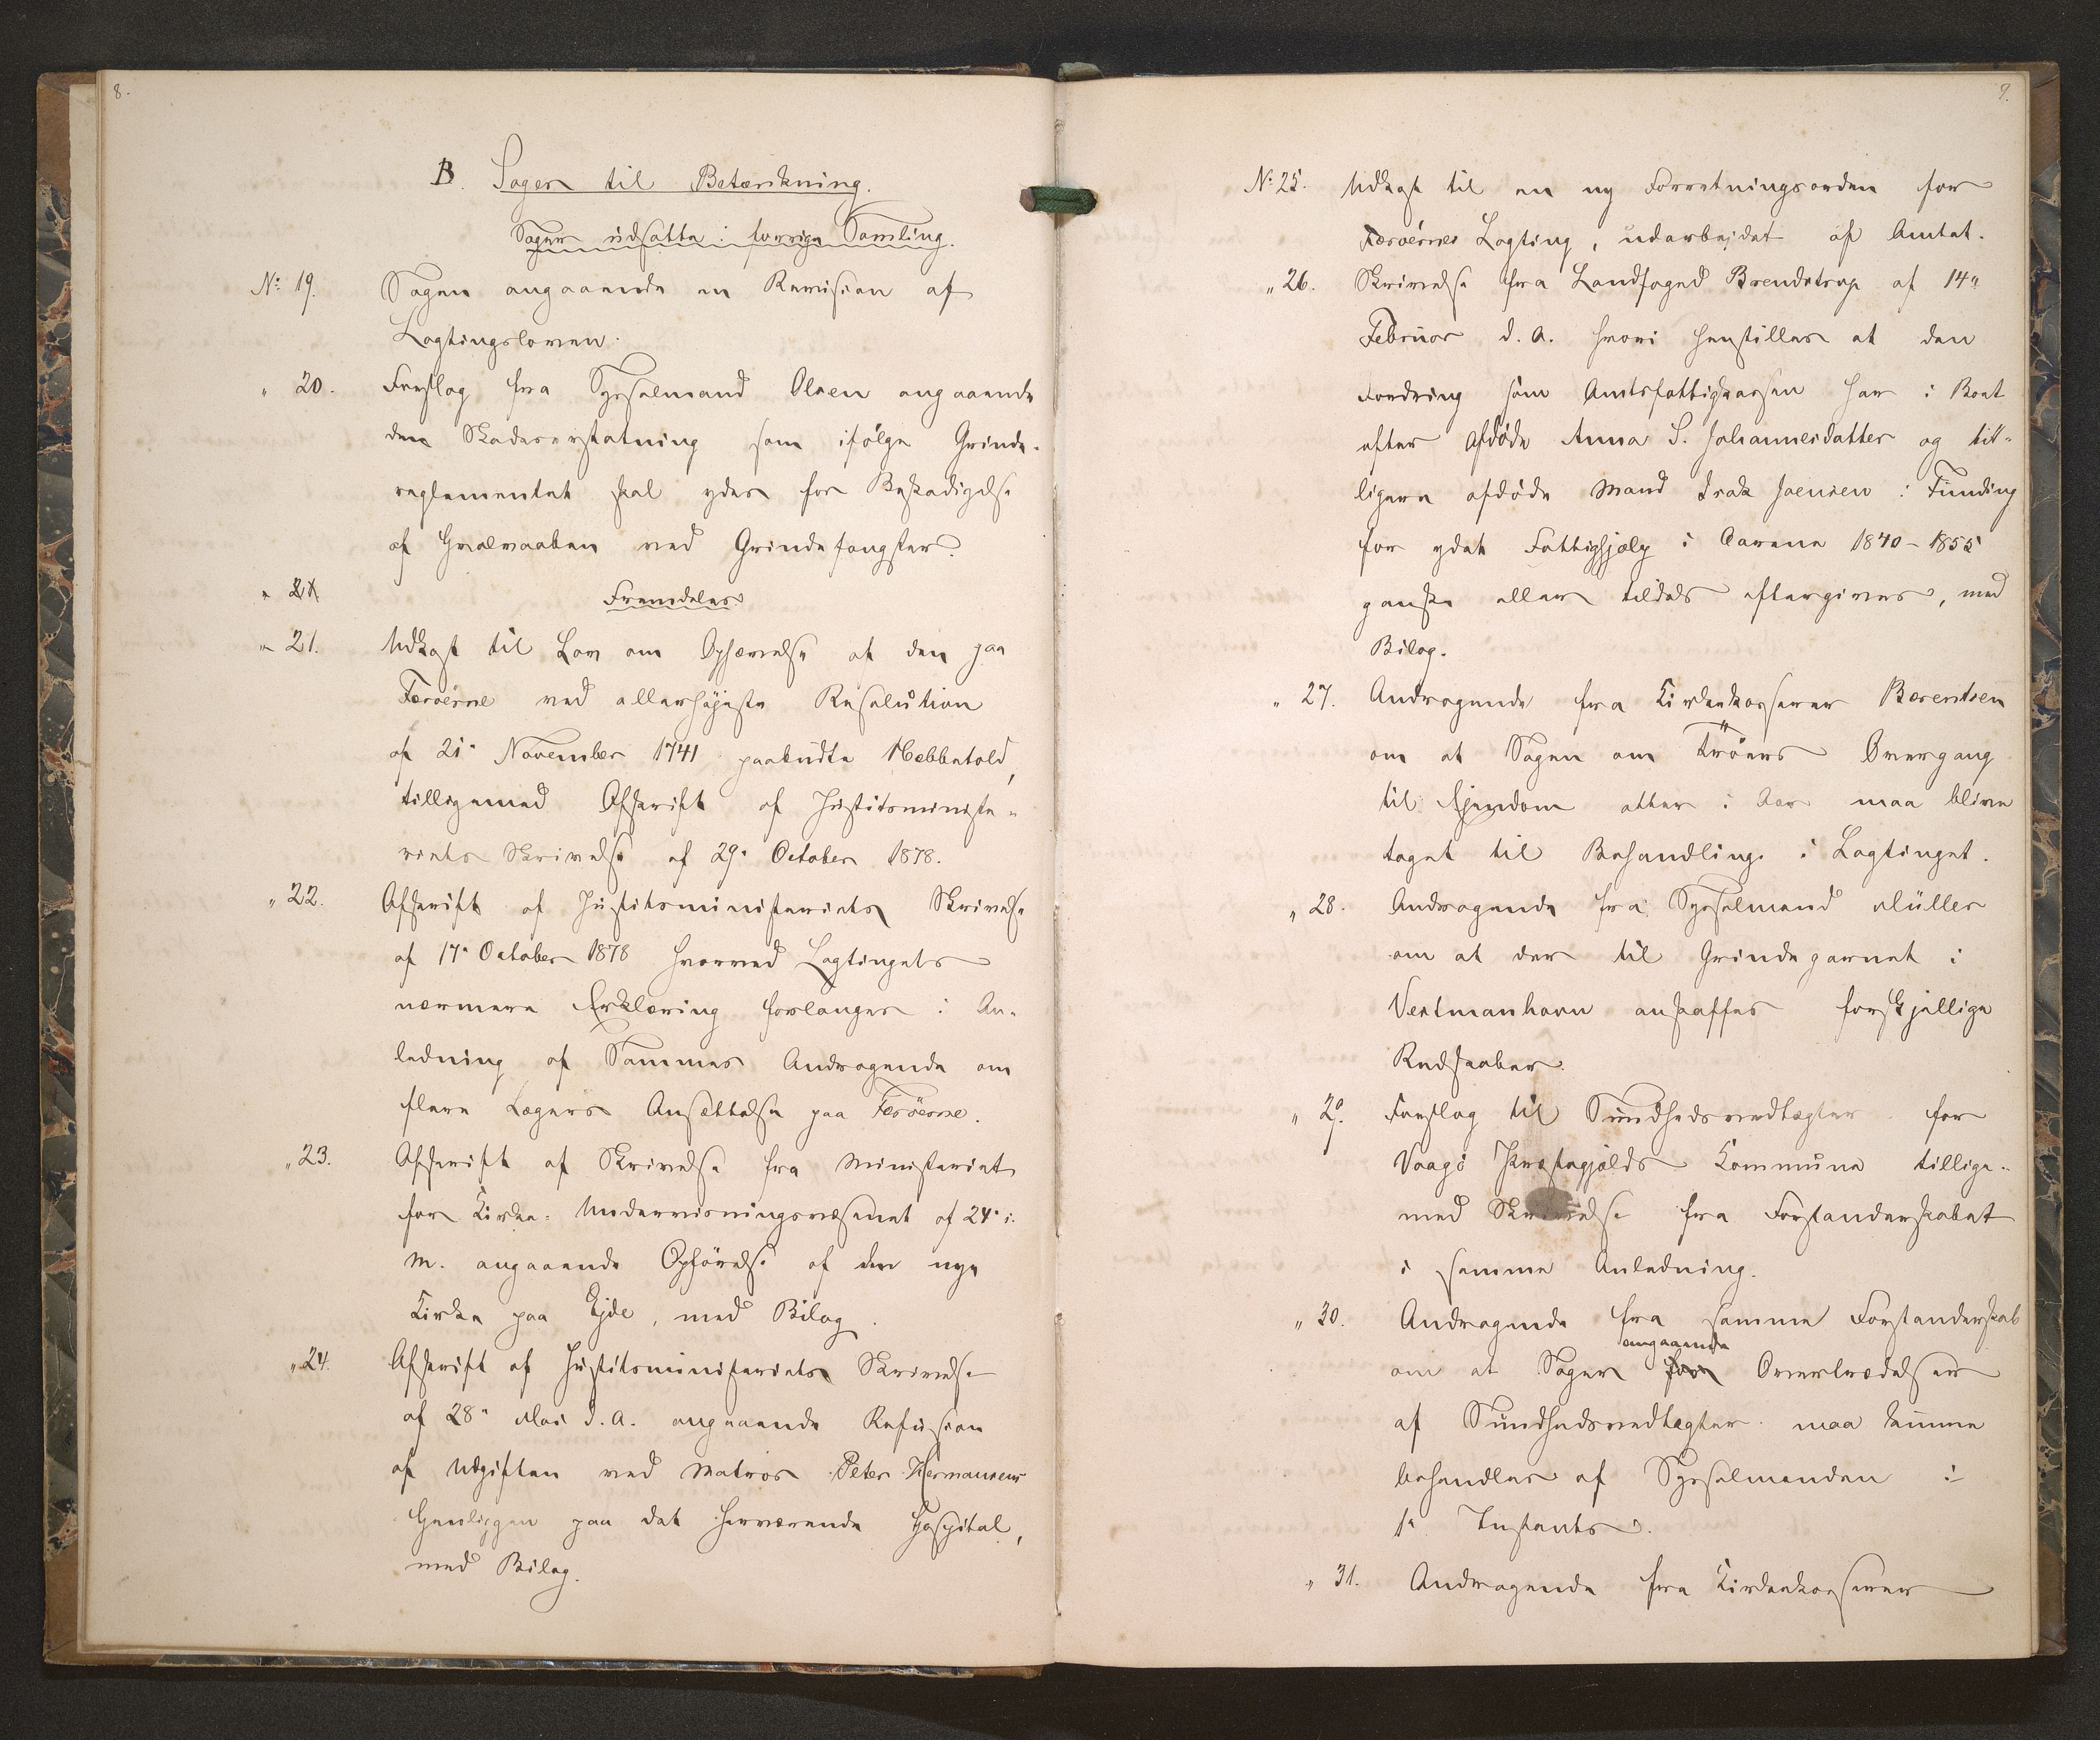 8.
B. Sager til Betænkning.
Sager udsatte i forrige Samling.
No 19. Sagen angaaende en Revision af
Lagtingsloven.
" 20. Forslag fra Sysselmand Olsen angaaende
den Skadeserstatning som ifölge Grinde-
reglementet skal ydes for Beskadigelse
af Hvalvaaben ved Grindefangster.
" 21
Fremdeles:
" 21. Udkast til Lov om Ophævelse af den paa
Færöerne ved allerhöjeste Resolution
af 21' November 1741 paabudte Næbbetold,
tilligemed Afskrift af Justitsministe-
riets Skrivelse af 29' October 1878.
" 22. Afskrift af Justitsministeriets Skrivelse
af 17' October 1878 hvorved Lagtingets
nærmere Erklæring forlanges i An-
ledning af Sammes Andragende om
flere Lægers Ansættelse paa Færöerne.
" 23. Afskrift af Skrivelse fra Ministeriet
for Kirke- Undervisningsvæsenet af 24' i.
M. angaaende Opförelse af den nye
Kirke paa Ejde, med Bilag.
" 24. Afskrift af Justitsministeriets Skrivelse
af 28' Mai d. A. angaaende Refusion
af Udgiften ved Matros Peter Hermansens
Henliggen paa det herværende Hospital,
med Bilag.
9.
No 25. Udkast til en ny Forretningsorden for
Færöernes Lagting, udarbejdet af Amtet.
" 26. Skrivelse fra Landfoged Brendstrup af 14"
Februar d. A. hvori henstilles at den
Fordring som Amtsfattigkassen har i Boet
efter afdöde Anna S. Johannesdatter og tid-
ligere afdöde Mand Isak Joensen i Funding
for ydet Fattighjælp i Aarene 1840-1855
ganske eller tildels eftergives, med
Bilag.
" 27. Andragende fra Kirkekasserer Berentsen
om at Sagen om Tröers Overgang
til Ejendom atter i Aar maa blive
taget til Behandling i Lagtinget.
" 28. Andragende fra Sysselmand Müller
om at der til Grindegarnet i
Vestmanhavn anskaffes forskjellige
Redskaber.
" 29. Forslag til Sundhedsvedtægter for
Vaagö Præstegjælds Kommune tillige-
med Skrivelse fra Forstanderskabet
i samme Anledning.
" 30. Andragende fra samme Forstanderskab
angaaende
om at Sager for Overtrædelser
af Sundhedsvedtægter maa kunne
behandles af Sysselmanden i
1' Instants.
" 31. Andragende fra Kirkekasserer